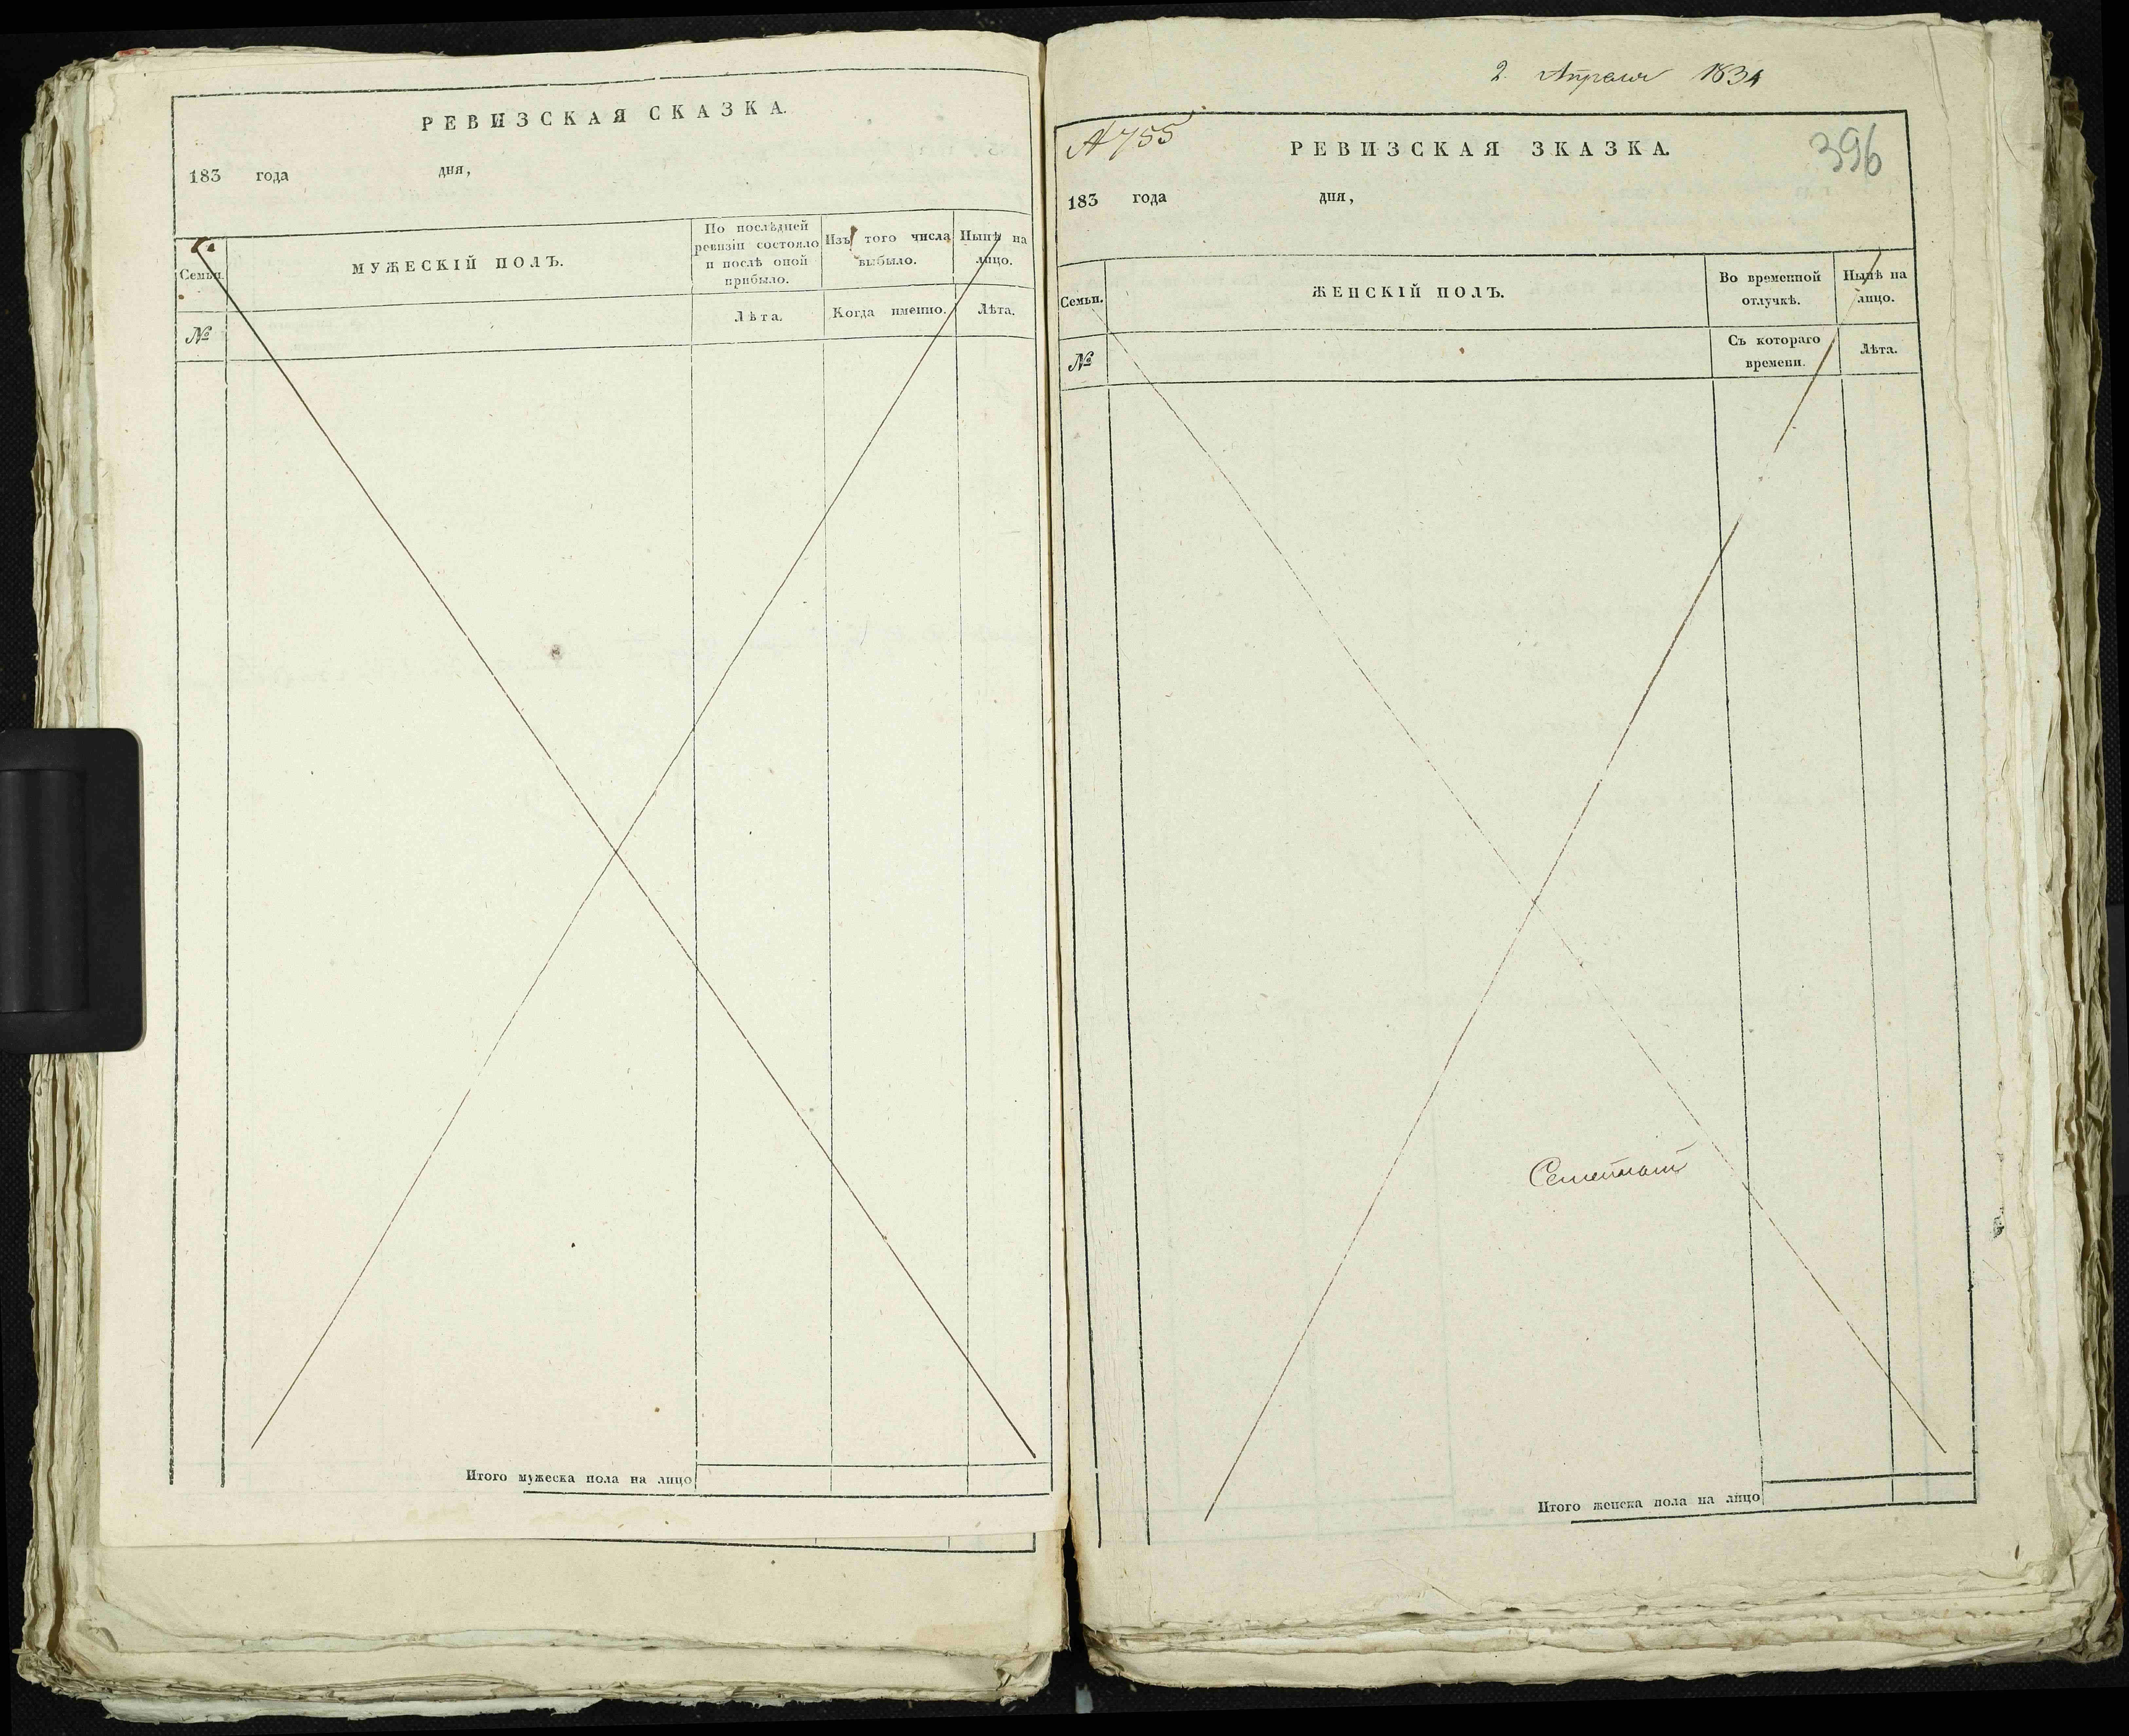 РЕВИЗСКАЯ СКАЗКА.
183 года дня,
Семьи.
МУЖЕСКІЙ ПОЛЪ.
По послѣдней
ревизіи состояло
и послѣ оной
прибыло.
Изъ того числа
выбыло.
Нынѣ на
лицо.
№
Лѣта.
Когда именно.
Лѣта.
Итого мужеска пола на лицо
2. Апреля 1834
№ 755
РЕВИЗСКАЯ ЗКАЗКА.
396
183 года дня,
Семьи.
ЖЕНСКІЙ ПОЛЪ.
Во временной
отлучкѣ.
Нынѣ на
лицо.
№
Съ котораго
времени.
Лѣта.
Итого женска пола на лицо